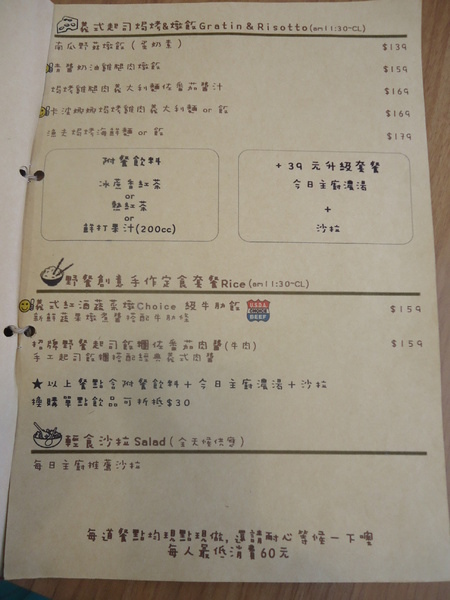 義式起司焗烤&燉飯Gratin&Risotto(am11:30~CL)
南瓜野菇燉飯(蛋奶素) $139
青醬奶油雞腿肉燉飯 $159
焗烤雞腿肉義大利麵佐番茄醬汁 $169
卡波娜娜焗烤雞肉義大利麵 or 飯 $169
漁夫焗烤海鮮麵 or 飯 $179
附餐飲料
冰蔗香紅茶
or
熱紅茶
or
鮮打果汁(200cc)
+ 39 元升級套餐
今日主廚濃湯
+
沙拉
野餐創意手作定食套餐Rice(am11:30~CL)
義式紅酒蔬菜燉Choice 級牛肋飯 $159
USDA CHOICE BEEF
新鮮蔬果燉煮醬搭配牛肋條
招牌野餐起司飯糰佐番茄肉醬(牛肉) $159
手工起司飯糰搭配經典義式肉醬
★以上餐點含附餐飲料+今日主廚濃湯+沙拉
換購單點飲品可折抵$30
輕食沙拉Salad(全天候供應)
每日主廚推薦沙拉
每道餐點均現點現做,還請耐心等候一下噢
每人最低消費60元